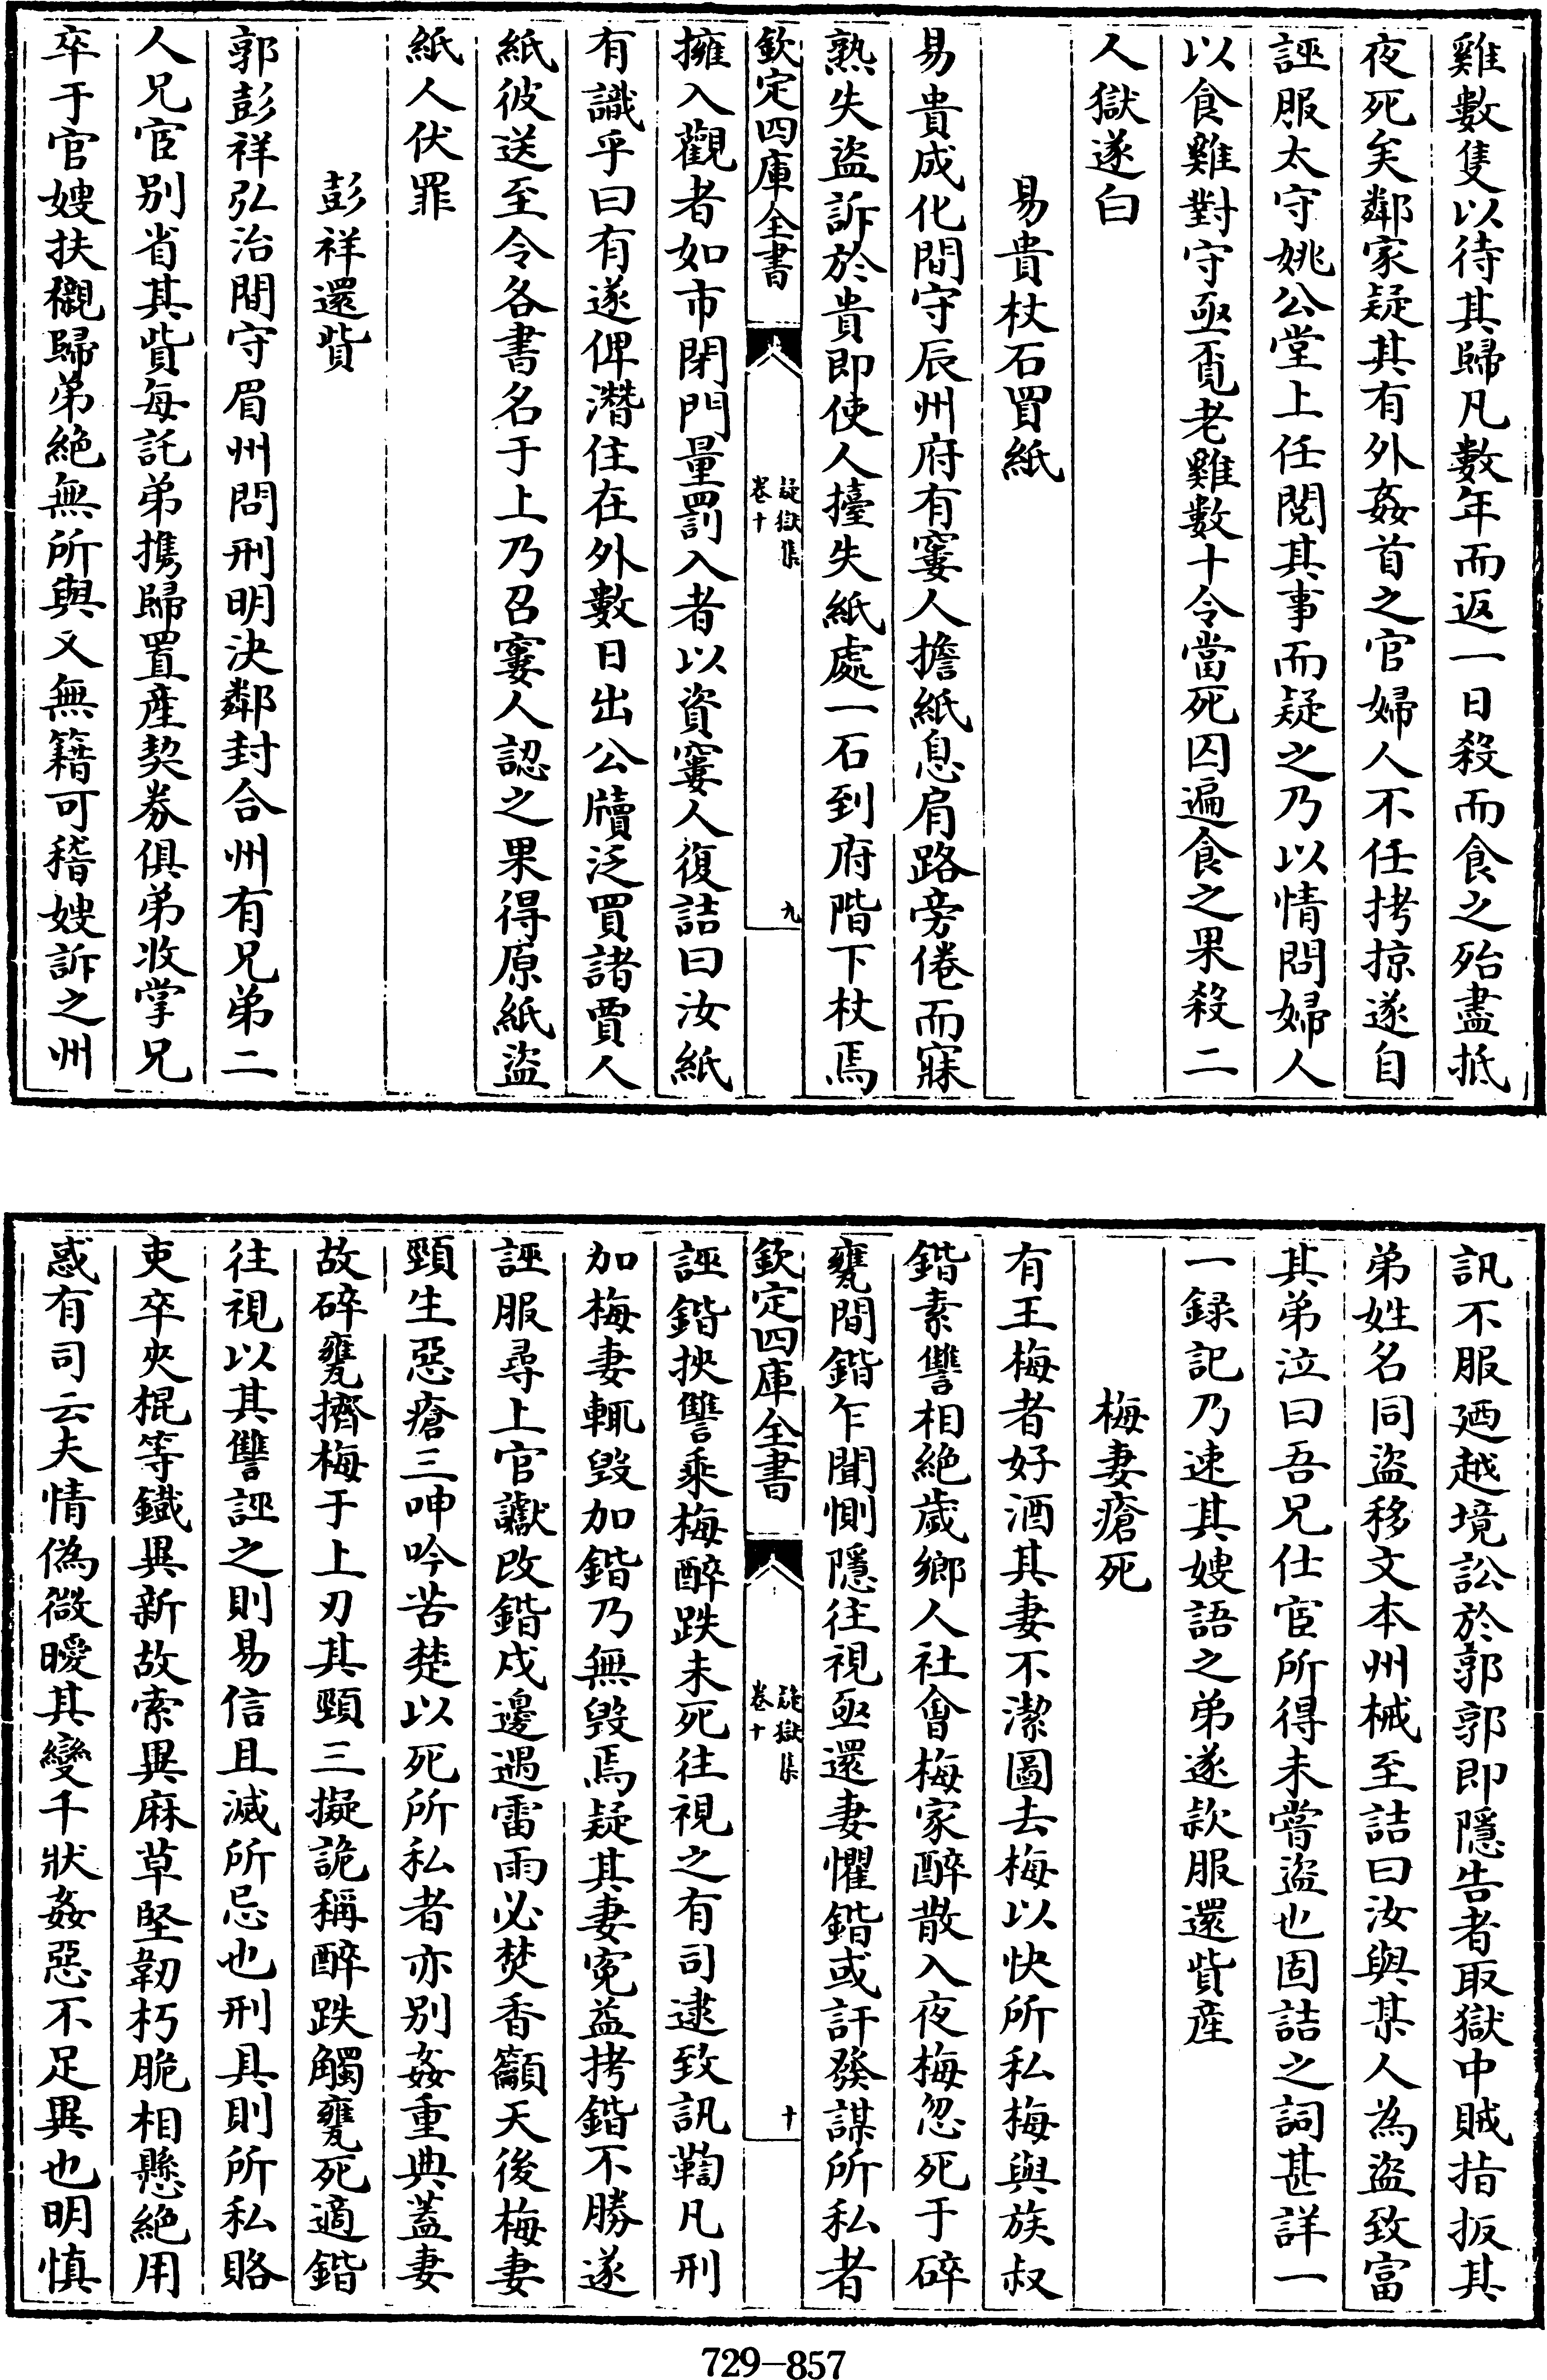 雞數隻以待其歸凡數年而返一日殺而食之殆盡抵
夜死矣鄰家疑其有外姦首之官婦人不任拷掠遂自
誣服太守姚公堂上任閱其事而疑之乃以情問婦人
以食雞對守亟覓老雞數十令當死囚遍食之果殺二
人獄遂白
易貴杖石買紙
易貴成化間守辰州府有窶人擔紙息肩路旁倦而寐
熟失盜訴於貴即使人擡失紙處一石到府階下杖焉
欽定四庫全書
疑獄集
卷十
九
擁入觀者如市閉門量罰入者以資窶人復詰曰汝紙
有識乎曰有遂俾潛住在外數日出公牘泛買諸賈人
紙彼送至令各書名于上乃召窶人認之果得原紙盜
紙人伏罪
彭祥還貲
郭彭祥弘治間守眉州問刑明決鄰封合州有兄弟二
人兄宦别省其貲每託弟攜歸置產契券俱弟收掌兄
卒于官嫂扶櫬歸弟絶無所與又無籍可稽嫂訴之州
訊不服廼越境訟於郭郭即隱告者取獄中賊指扳其
弟姓名同盜移文本州械至詰曰汝與某人為盜致富
其弟泣曰吾兄仕宦所得未嘗盜也固詰之詞甚詳一
一録記乃速其嫂語之弟遂款服還貲產
梅妻瘡死
有王梅者好酒其妻不潔圖去梅以快所私梅與族叔
鍇素讐相絶歲鄉人社會梅家醉散入夜梅忽死于碎
甕間鍇乍聞惻隱往視亟還妻懼鍇或訐發謀所私者
欽定四庫全書
疑獄集
卷十
十
誣鍇挾讐乘梅醉跌未死往視之有司逮致訊鞫凡刑
加梅妻輒毀加鍇乃無毀焉疑其妻寃益拷鍇不勝遂
誣服尋上官讞改鍇戍邊遇雷雨必焚香籲天後梅妻
頸生惡瘡三呻吟苦楚以死所私者亦别姦重典蓋妻
故碎甕擠梅于上刃其頸三擬詭稱醉跌觸甕死適鍇
往視以其讐誣之則易信且滅所忌也刑具則所私賂
吏卒夾棍等鐵異新故索異麻草堅韌朽脆相懸絶用
惑有司云夫情偽微曖其變千狀姦惡不足異也明慎
729–857